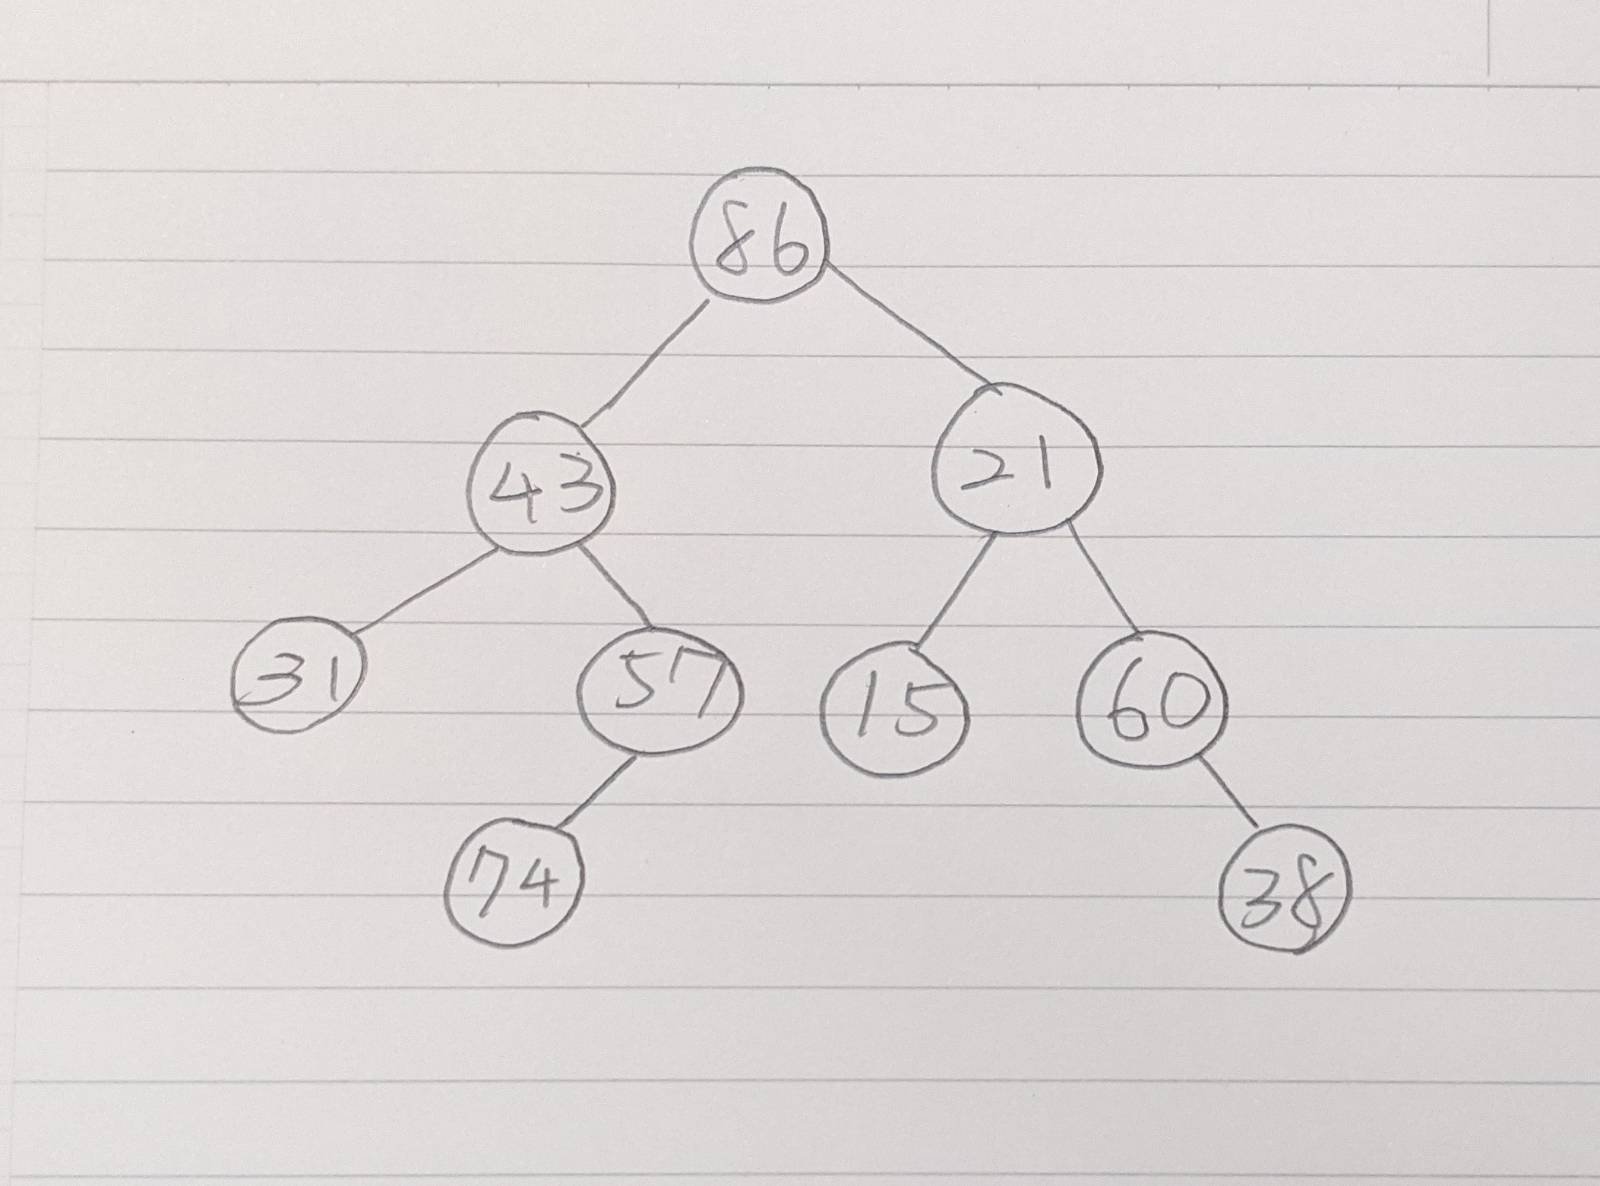 86
43 21
31 57 15 60
74 38